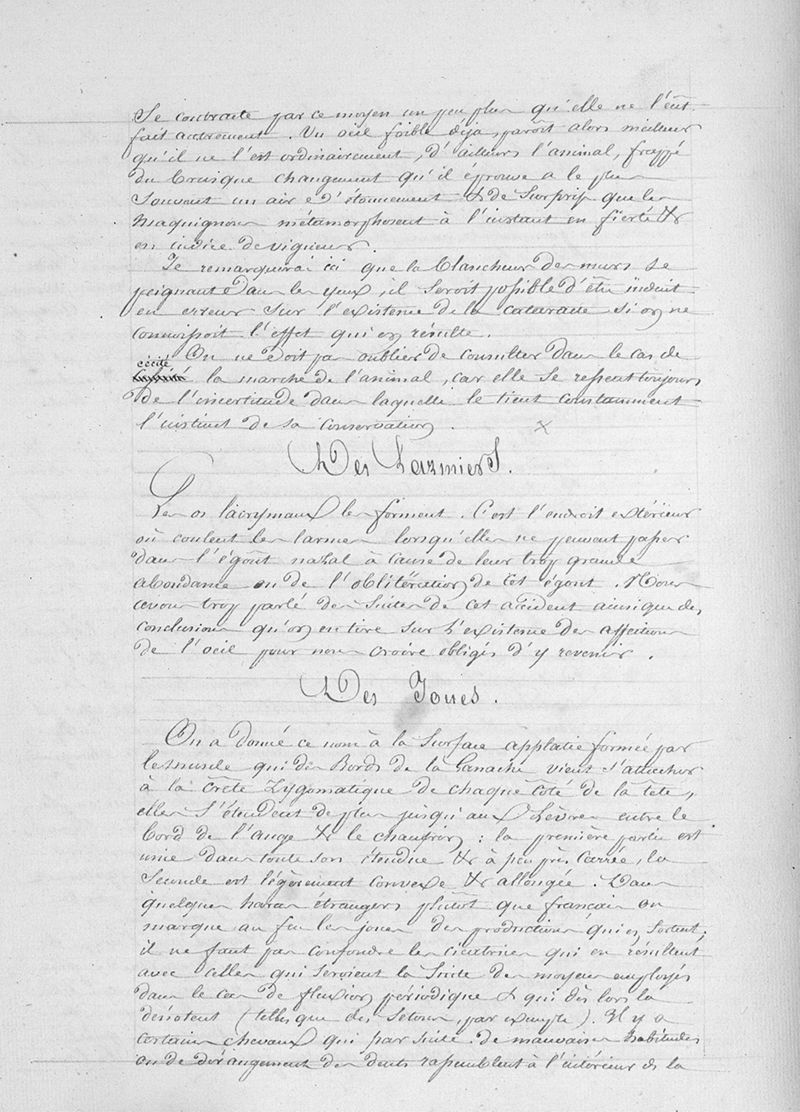 Se contracte par ce moyen un peu plus qu'elle ne l'eut
fait autrement. Un oeil faible déja, paroit alors meilleur
qu'il ne l'est ordinairement, d'ailleurs l'animal, frappé
du brusque changement qu'il éprouve a le plus
Souvent un air d'étonnement & de Surprise que les
Maquignons métamorphosent à l'instant en fierté &
en indice de vigueur.
Je remarquerai ici que la blancheur des murs se
peignant dans les yeux, il seroit possible d'être induit
en erreur sur l'existence de la cataracte si on ne
connoissoit l'effet qui en résulte.
On ne doit pas oublier de consulter dans le cas de
cécité la marche de l'animal, car elle se ressent toujours
de l'incertitude dans laquelle le tient constamment
l'instinct de sa conservation. x
Des Larmiers.
Les os lacrymaux les forment. C'est l'endroit extérieur
où coulent les larmes lorsqu'elles ne peuvent passer
dans l'égoût nazal à cause de leur trop grande
abondance ou de l'oblitération de cet égout. Nous
avons trop parlé des suites de cet accident ainsi que des
conclusions qu'on en tire sur l'existence des affections
de l'oeil pour nous croire obligés d'y revenir.
Des Joues.
On a donné ce nom à la Surface applatie formée par
le muscle qui des Bords de la Ganache vient s'attacher
à la crête Zygomatique de chaque côté de la tête,
elles S'étendent de plus jusqu'aux Lèvres entre le
bord de l'auge & le chanfrein : la première partie est
unie dans toute son étendue & à peu près carrée, la
Seconde est légèrement convexe & allongée. Dans
quelques haras étrangers plutôt que français on
marque au feu les joues des productions qui en sortent;
il ne faut pas confondre les cicatrices qui en résultent
avec celles qui seroient la Suite des moyens employés
dans le cas de fluxion périodique & qui dès lors la
dénotent (telles que des Setons, par exemple). Il y a
certains chevaux qui par suite de mauvaises habitudes
ou de dérangement des dents rassemblent à l'intérieur de la